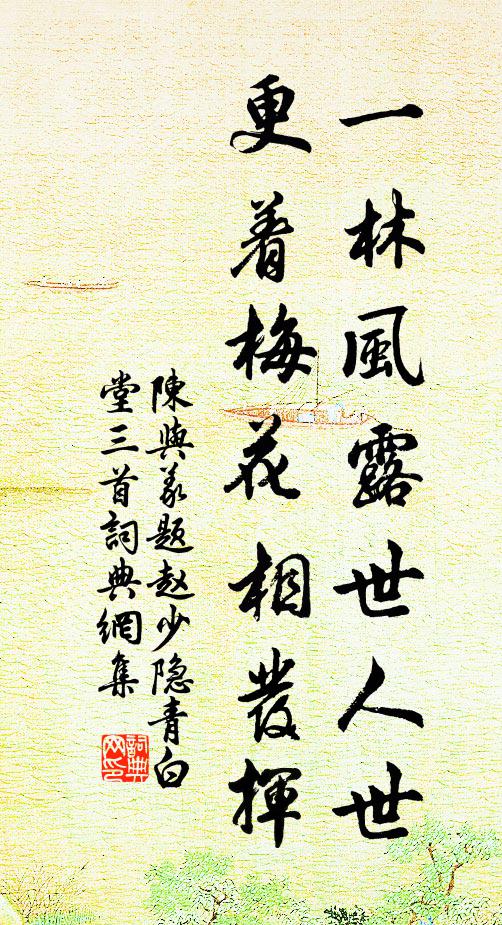 一林風露世人世
更着梅花相發揮
陳與義題赵少隐青白
堂三首詞典網集
詞典
网印